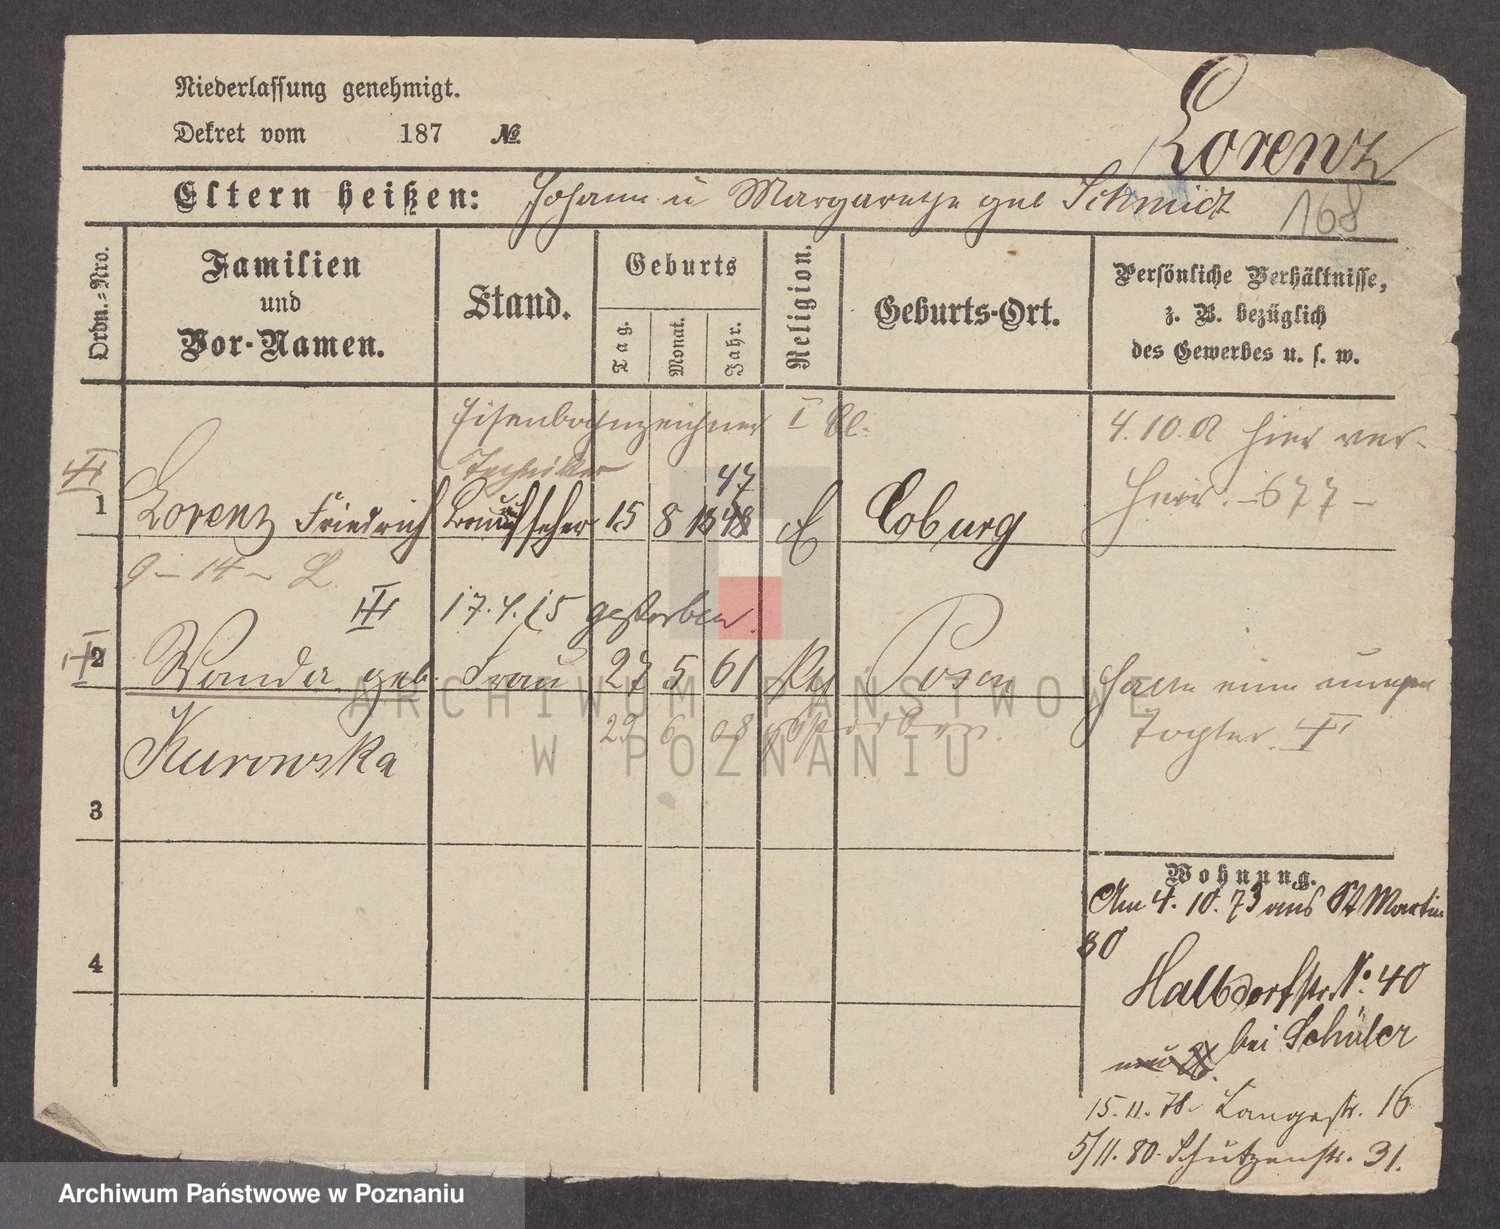 Niederlassung genehmigt.
Dekret vom 187 №
Lorenz
Eltern heißen: Johann u Margarethe geb Schmidt
168
Ordn.-Nro.
Familien
und
Vor-Namen.
Stand.
Geburts
Tag.
Monat.
Jahr.
Religion.
Geburts-Ort.
Persönliche Verhältnisse,
z. B. bezüglich
des Gewerbes u. s. w.
Eisenbahnzeichner I Cl.
Techniker
47
1 Lorenz Friedrich Bauaufseher 15 8 1848 E Coburg
4. 10. hier ver-
heir. -677-
9-14- L.
III 17.4.15 gestorben.
2 Wanda geb. Frau 27 5 61 Posen
Kurowska
29 6 08 gestorben.
Tochter
3
4
Wohnung.
Am 4. 10. 73 aus St Martin
80
Halbdorfstr. No. 40
bei Schüler
15. 11. 78. Langestr. 16
5/11. 80. Schützenstr. 31.
ARCHIWUM PAŃSTWOWE
W POZNANIU
Archiwum Państwowe w Poznaniu